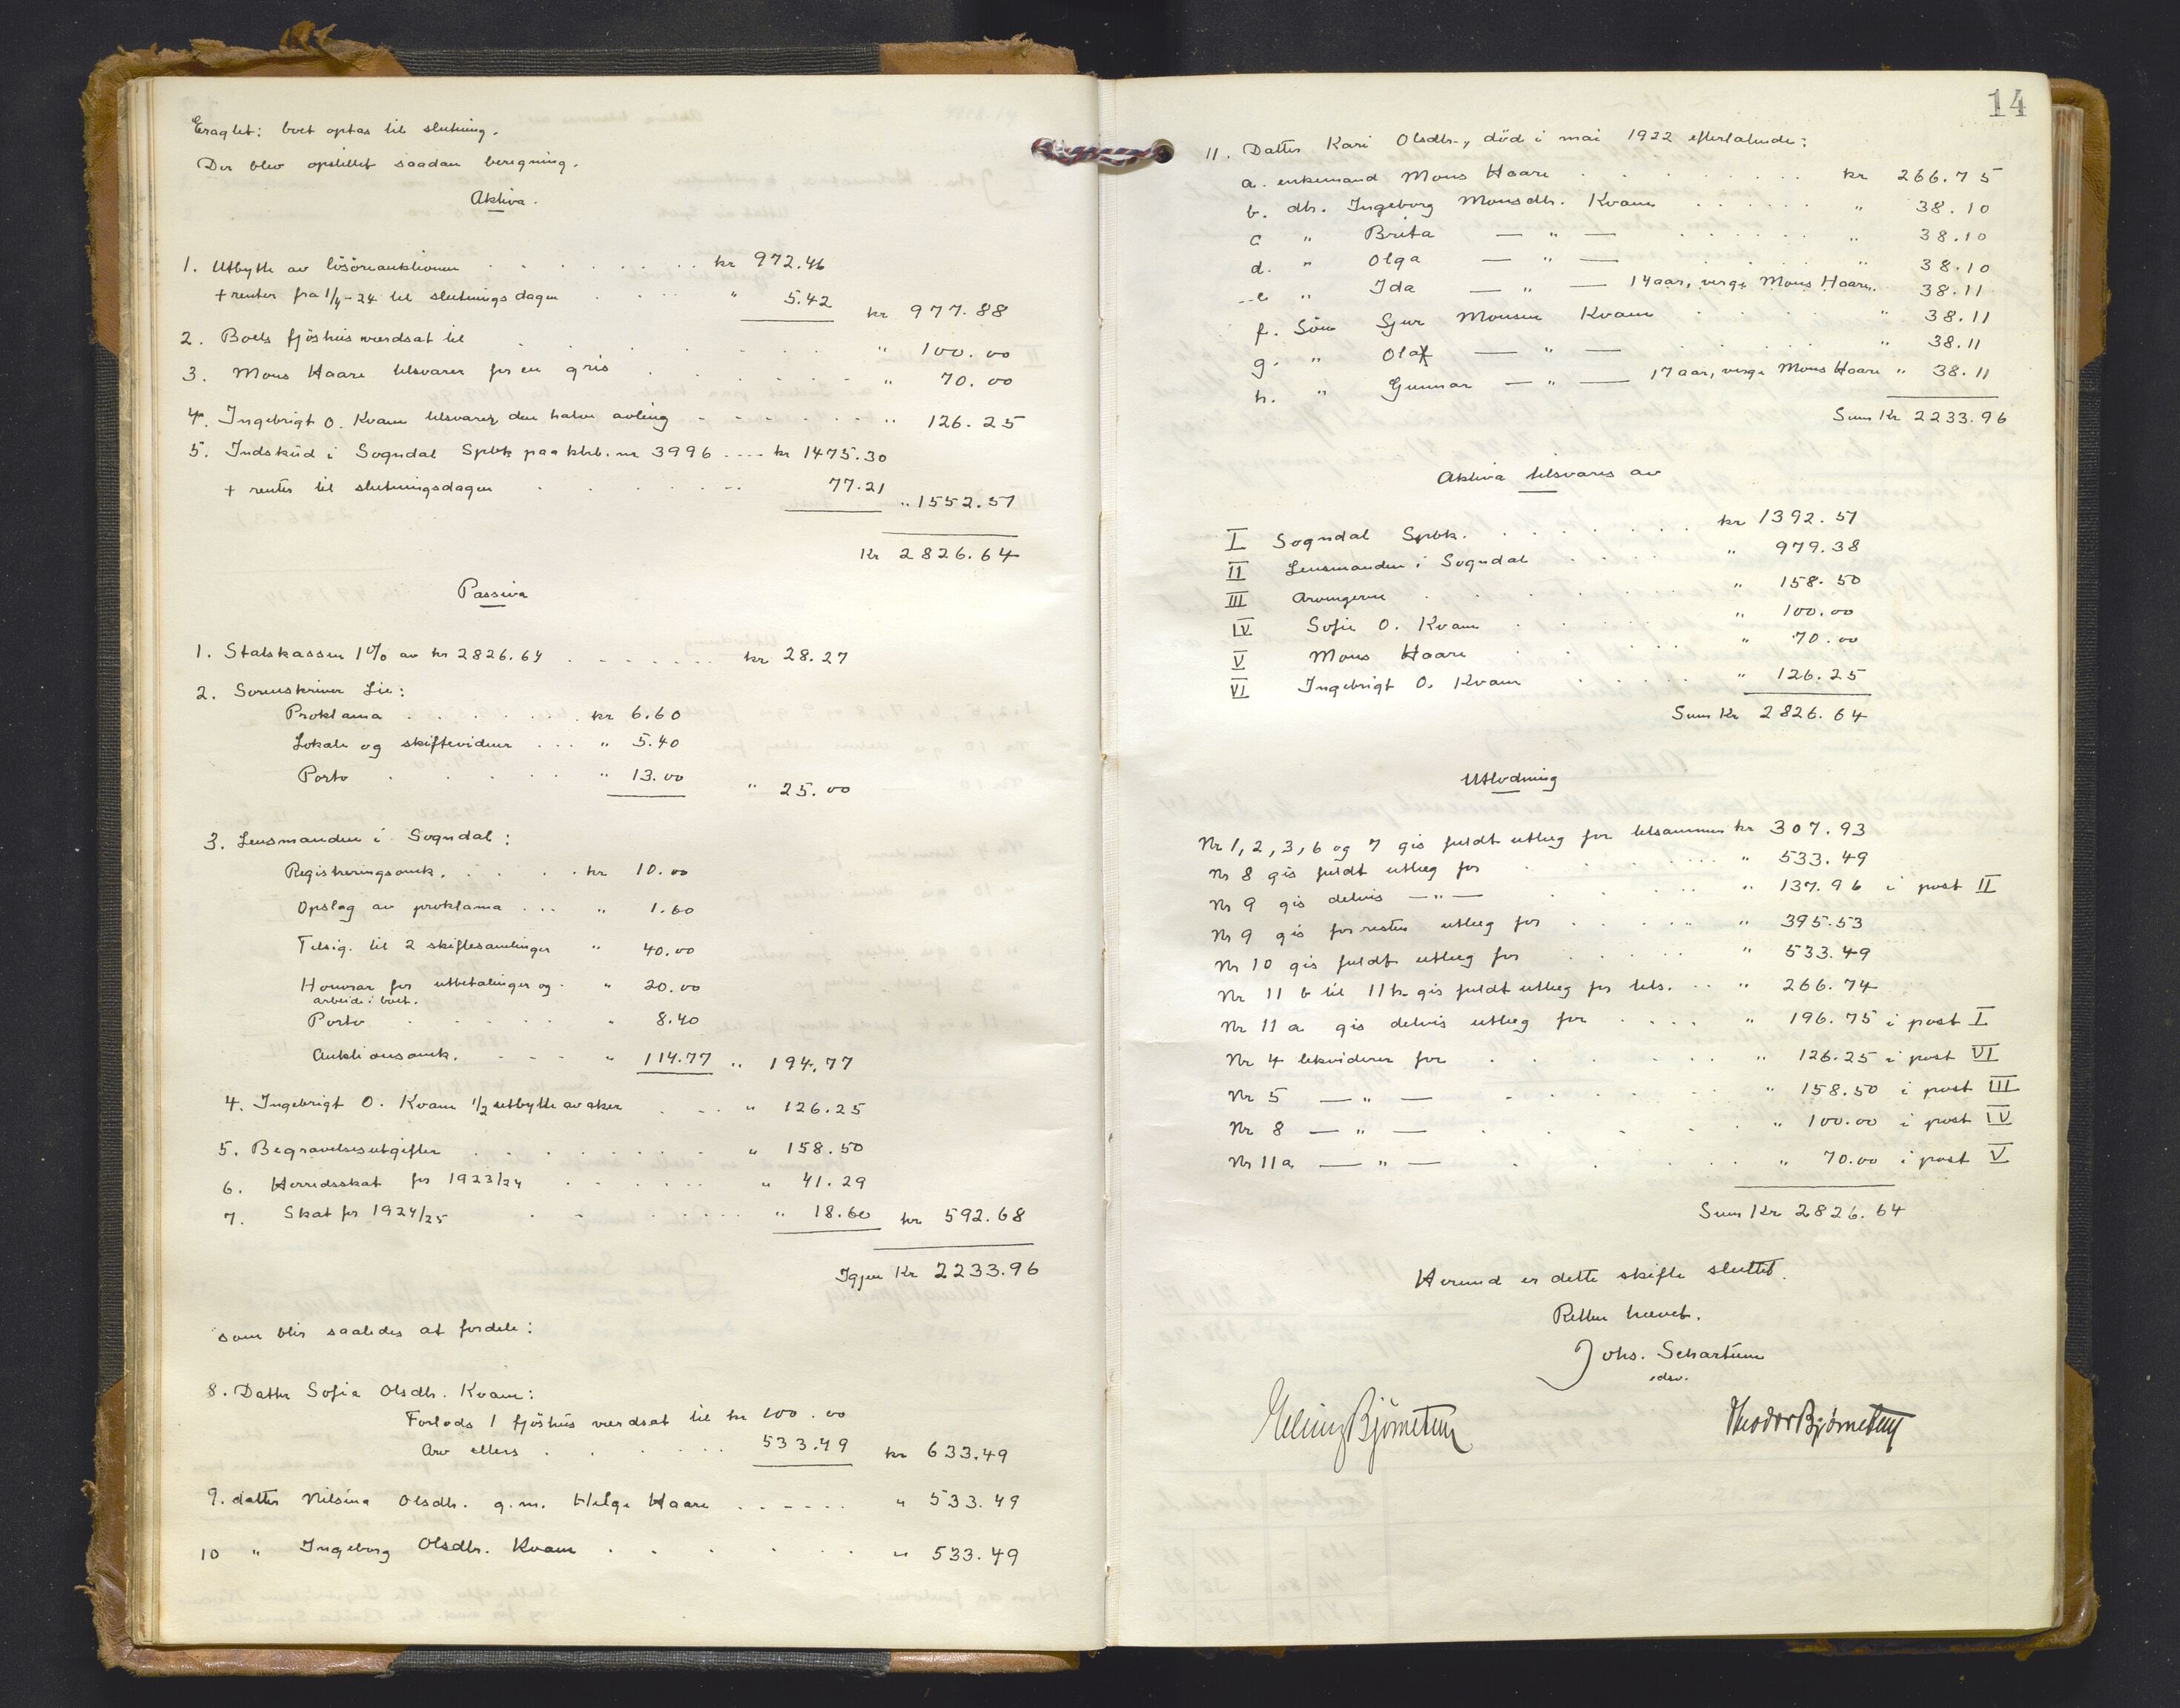 Eragtet: boet optas til slutning.
Der blev opstillet saadan beregning.
Aktiva.
1. Utbytte av lösöreauktionen . . . . . . . . kr 972.46
+ renter fra 1/4-24 til slutningsdagen . . . . " 5.42 kr 977.88
2. Boets fjöshus værdsat til . . . . . . . . " 100.00
3. Mons Haare tilsvarer for en gris . . . . . . . " 70.00
4. Ingebrigt O. Kvam tilsvarer den halve avling - - - - - - - " 126.25
5. Indskud i Sogndal Spbk paa ktrb. nr 3996 .... kr 1475.30
+ renter til slutningsdagen . . . . . . . 77.21 " 1552.51
Kr 2826.64
Passiva
1. Statskassen 1% av kr 2826.64 . . . . . . . kr 28.27
2. Sorenskriver Lie:
Proklama . . . . . . . kr 6.60
Lokale og skiftevidner . . . " 5.40
Porto . . . . . . " 13.00 " 25.00
3. Lensmanden i Sogndal:
Registreringsomk. . . . . kr 10.00
Opslag av proklama . . . " 1.60
Tilsig. til 2 skiftesamlinger " 40.00
Honorar for utbetalinger og . " 20.00
arbeide i boet.
Porto . . . . . " 8.40
Auktionsomk. . - - - " 114.77 " 194.77
4. Ingebrigt O. Kvam 1/2 utbytte av aker . . . " 126.25
5. Begravelsesutgifter . . . . . . . . " 158.50
6. Herredsskat for 1923/24 . . . . . . " 41.29
7. Skat for 1924/25 . . . . . . . . " 18.60 kr 592.68
Igjen Kr 2233.96
som blir saaledes at fordele:
8. Datter Sofie Olsdtr. Kvam:
Forlods 1 fjöshus værdsat til kr 100.00
Arv ellers . . . . . . 533.49 kr 633.49
9. datter Nilsina Olsdtr. g.m. Helge Haare . . . . . . " 533.49
10 " Ingeborg Olsdtr. Kvam . . . . . . " 533.49
14
11. Datter Kari Olsdtr., död i mai 1922 efterlatende:
a. enkemand Mons Haare . . . . . . . . . kr 266.75
b. dtr. Ingeborg Monsdtr. Kvam . . . . . . " 38.10
c " Brita — " — . . . . . . " 38.10
d. " Olga — " — " 38.10
e " Ida — " — 14 aar, verge Mons Haare. 38.11
f. Sön Sjur Monsen Kvam . . . . . " 38.11
g. " Olaf — " — . . . . . " 38.11
h. " Gunnar — " — 17 aar, verge Mons Haare " 38.11
Sum Kr 2233.96
Aktiva tilsvares av
I Sogndal Spbk. . . . . . . . kr 1392.51
II Lensmanden i Sogndal . . . . " 979.38
III Arvingerne . . . . . . " 158.50
IV Sofie O. Kvam . . . . . " 100.00
V Mons Haare . . . . . . " 70.00
VI Ingebrigt O. Kvam . . . . . " 126.25
Sum Kr 2826.64
Utlodning
Nr 1, 2, 3, 6 og 7 gis fuldt utlæg for tilsammen kr 307.93
Nr 8 gis fuldt utlæg for . . . . . . . " 533.49
Nr 9 gis delvis — " — . . . . . " 137.96 i post II
Nr 9 gis forresten utlæg for . . . . . . " 395.53
Nr 10 gis fuldt utlæg for . . . . . " 533.49
Nr 11 b til 11 h gis fuldt utlæg for tils. . . . " 266.74
Nr 11 a gis delvis utlæg for . . . . " 196.75 i post I
Nr 4 likviderer for . . . . . . . " 126.25 i post VI
Nr 5 — " — . . . . . . " 158.50 i post III
Nr 8 — " — . . . . . . " 100.00 i post IV
Nr 11a — " — . . . . . . " 70.00 i post V
Sum Kr 2826.64
Hermed er dette skifte sluttet.
Retten hævet.
Johs. Schartum
edsv.
Elling Bjørnetun Theodor Bjørnetun